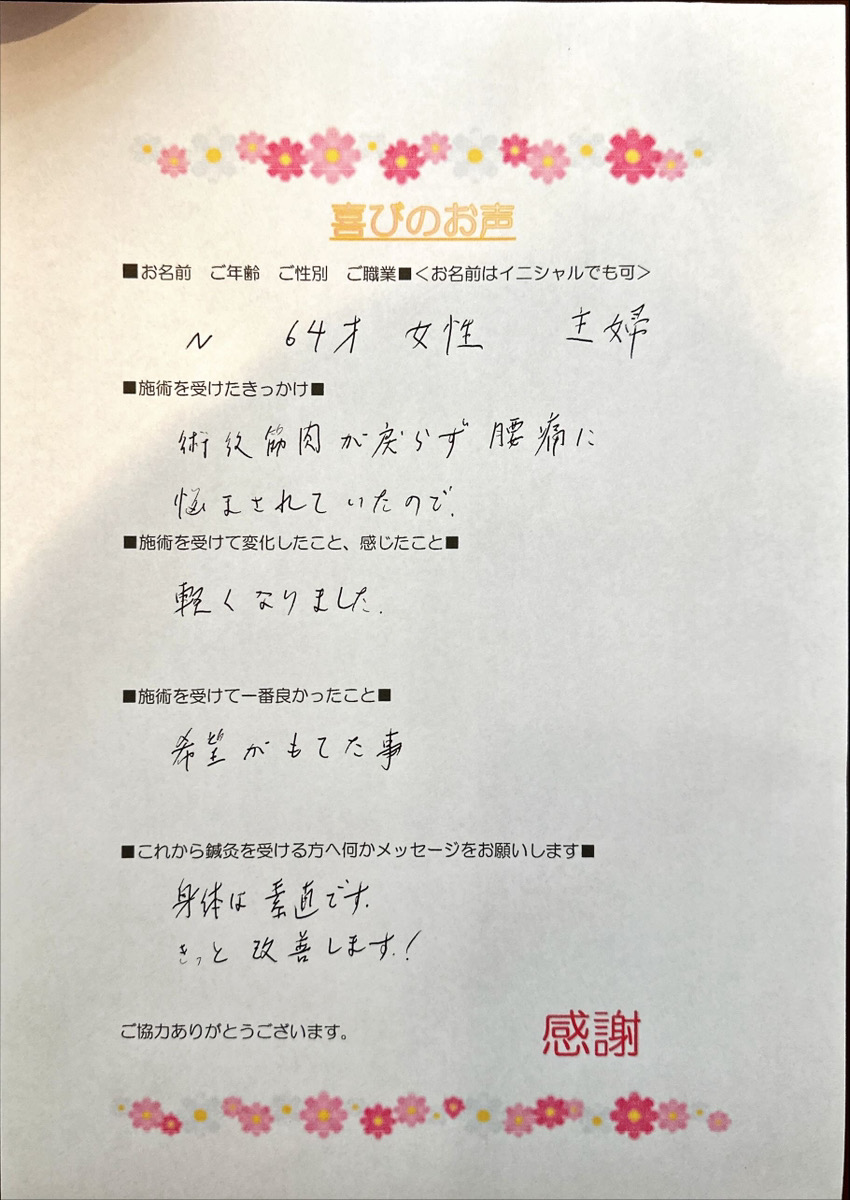 喜びのお声
■お名前　ご年齢　ご性別　ご職業■＜お名前はイニシャルでも可＞
N　64才　女性　主婦
■施術を受けたきっかけ■
術後筋肉が戻らず腰痛に
悩まされていたので.
■施術を受けて変化したこと、感じたこと■
軽くなりました.
■施術を受けて一番良かったこと■
希望がもてた事
■これから鍼灸を受ける方へ何かメッセージをお願いします■
身体は素直です.
きっと改善します.!
ご協力ありがとうございます。
感謝